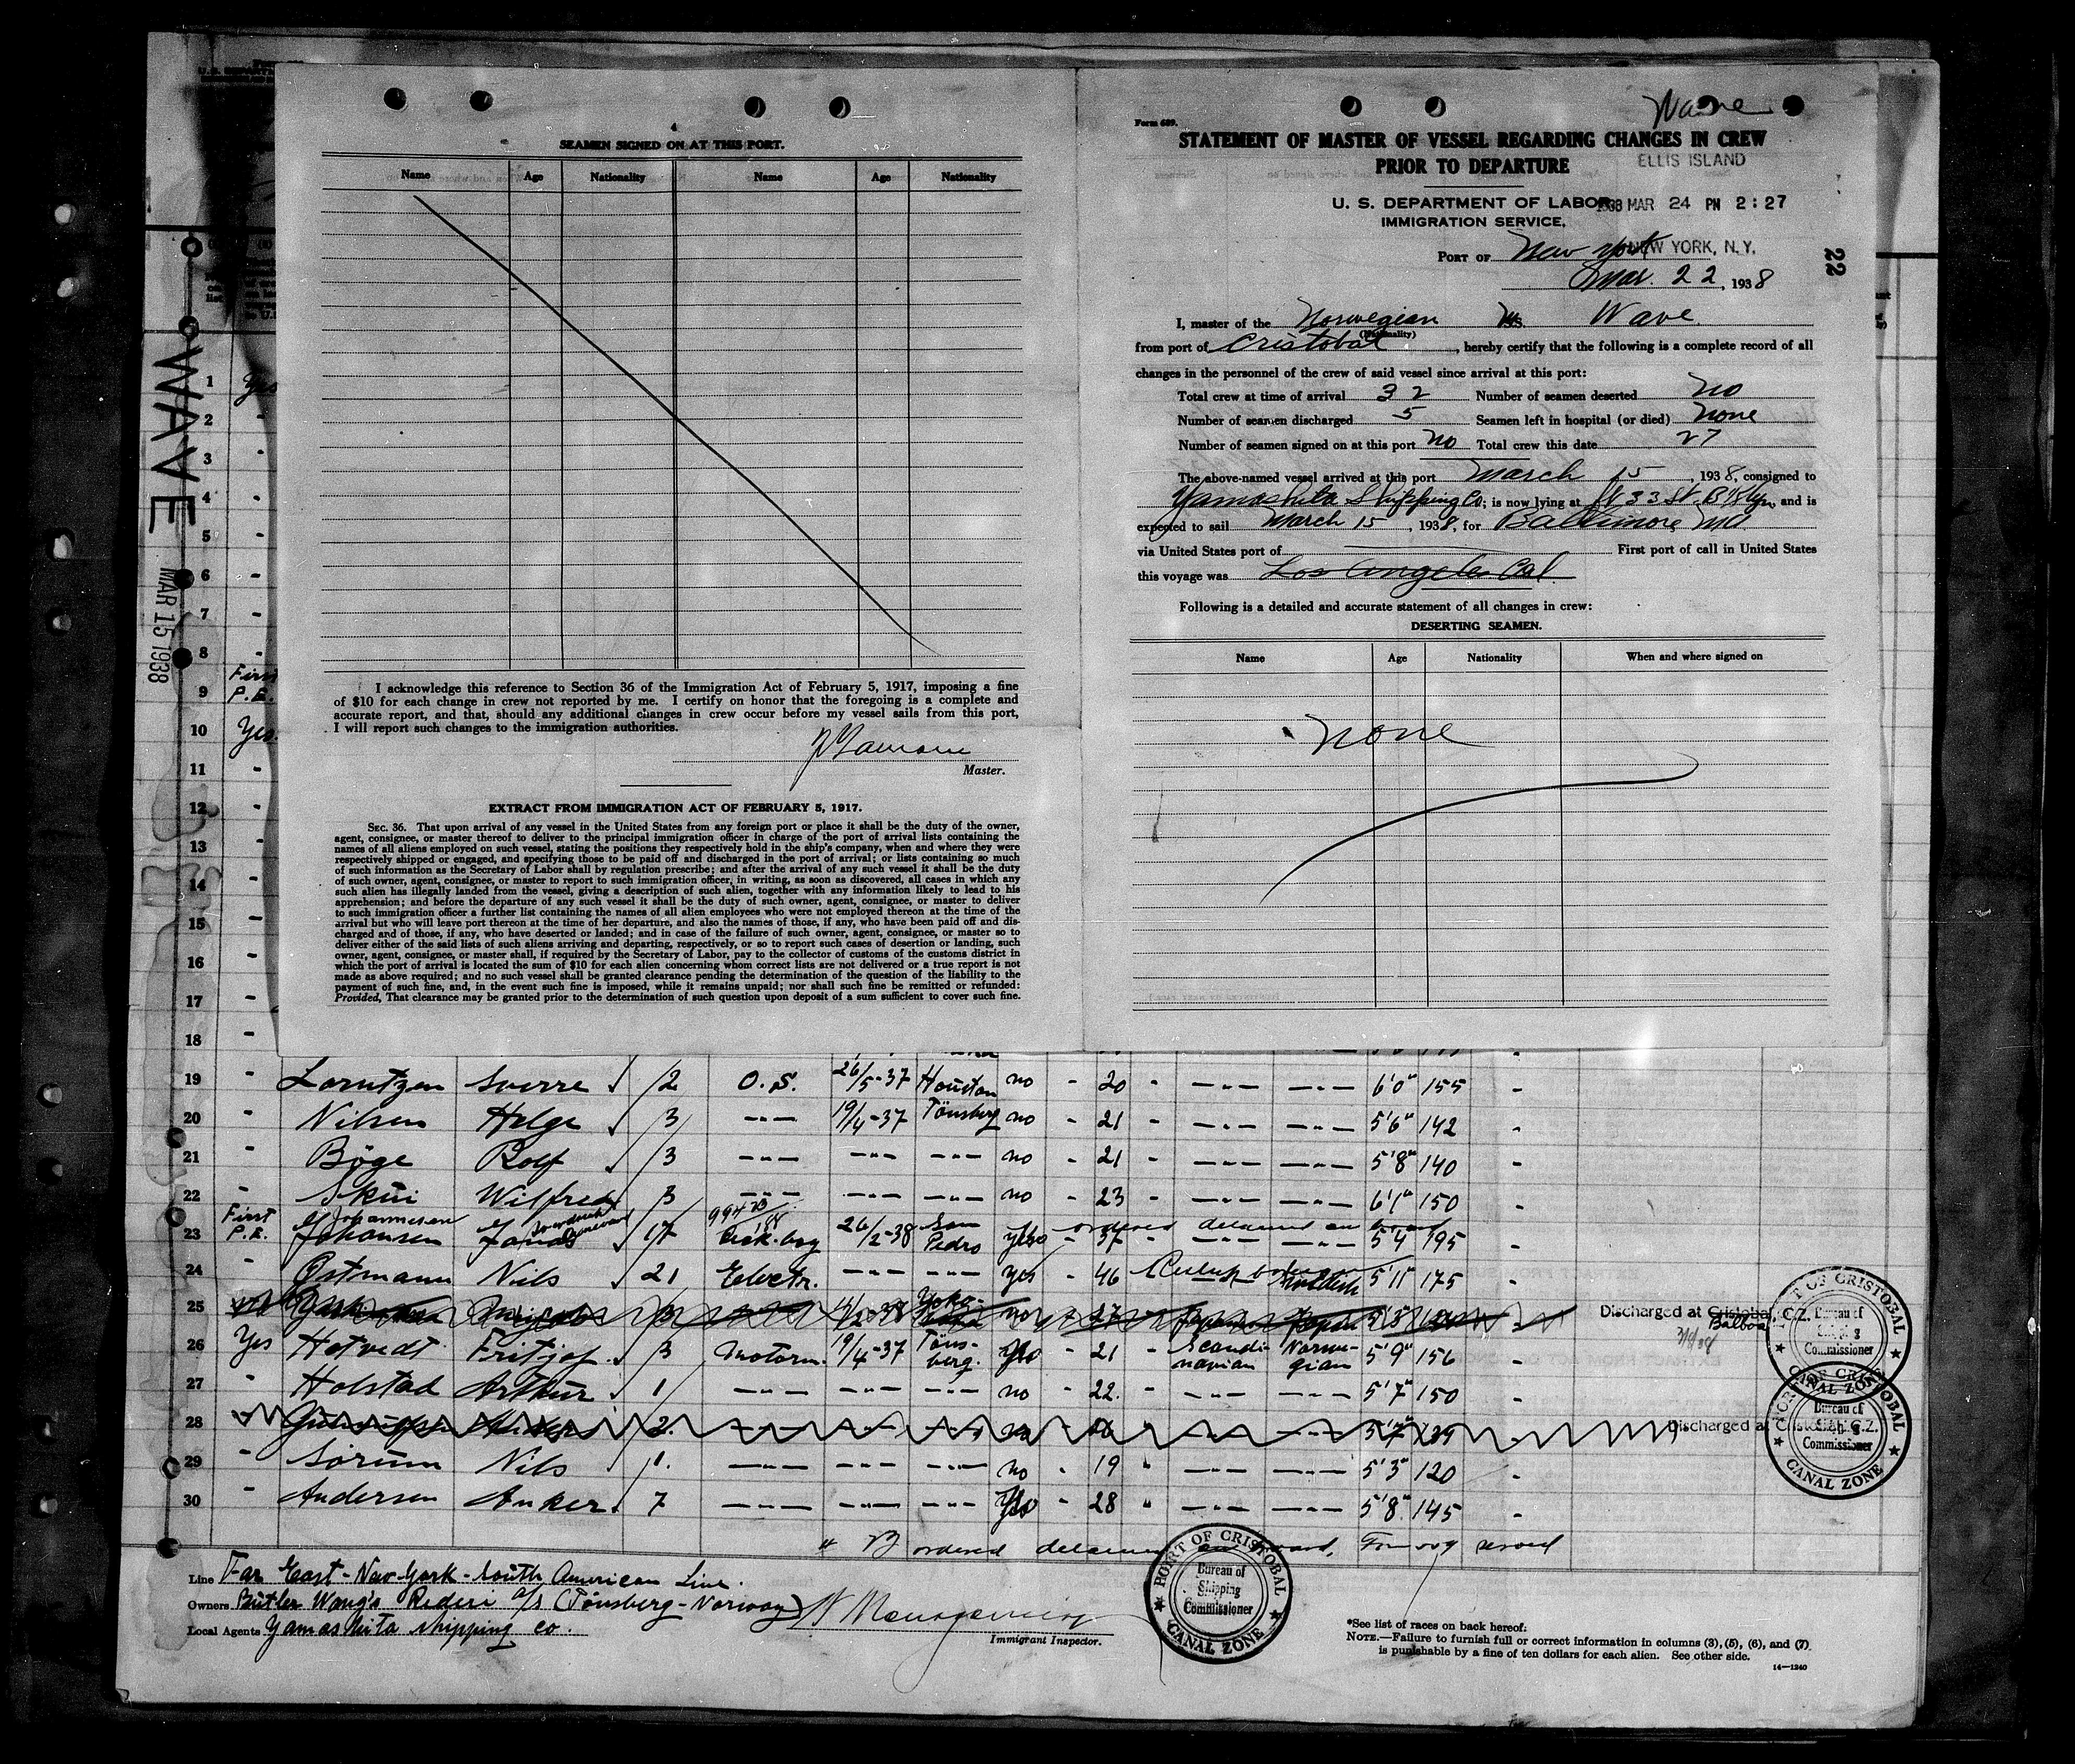 SEAMEN SIGNED ON AT THIS PORT.
Name Age Nationality Name Age Nationality
I acknowledge this reference to Section 36 of the Immigration Act of February 5, 1917, imposing a fine
of $10 for each change in crew not reported by me. I certify on honor that the foregoing is a complete and
accurate report, and that, should any additional changes in crew occur before my vessel sails from this port,
I will report such changes to the immigration authorities.
Master.
EXTRACT FROM IMMIGRATION ACT OF FEBRUARY 5, 1917.
SEC. 36. That upon arrival of any vessel in the United States from any foreign port or place it shall be the duty of the owner,
agent, consignee, or master thereof to deliver to the principal immigration officer in charge of the port of arrival lists containing the
names of all aliens employed on such vessel, stating the positions they respectively hold in the ship's company, when and where they were
respectively shipped or engaged, and specifying those to be paid off and discharged in the port of arrival; or lists containing so much
of such information as the Secretary of Labor shall by regulation prescribe; and after the arrival of any such vessel it shall be the duty
of such owner, agent, consignee, or master to report to such immigration officer, in writing, as soon as discovered, all cases in which any
such alien has illegally landed from the vessel, giving a description of such alien, together with any information likely to lead to his
apprehension; and before the departure of any such vessel it shall be the duty of such owner, agent, consignee, or master to deliver
to such immigration officer a further list containing the names of all alien employees who were not employed thereon at the time of the
arrival but who will leave port thereon at the time of her departure, and also the names of those, if any, who have been paid off and dis-
charged and of those, if any, who have deserted or landed; and in case of the failure of such owner, agent, consignee, or master so to
deliver either of the said lists of such aliens arriving and departing, respectively, or so to report such cases of desertion or landing, such
owner, agent, consignee, or master shall, if required by the Secretary of Labor, pay to the collector of customs of the customs district in
which the port of arrival is located the sum of $10 for each alien concerning whom correct lists are not delivered or a true report is not
made as above required; and no such vessel shall be granted clearance pending the determination of the question of the liability to the
payment of such fine, and, in the event such fine is imposed, while it remains unpaid; nor shall such fine be remitted or refunded:
Provided, That clearance may be granted prior to the determination of such question upon deposit of a sum sufficient to cover such fine.
Wave
Form 689.
STATEMENT OF MASTER OF VESSEL REGARDING CHANGES IN CREW
PRIOR TO DEPARTURE
ELLIS ISLAND
U. S. DEPARTMENT OF LABOR
1938 MAR 24 PM 2:27
IMMIGRATION SERVICE.
PORT OF New York NEW YORK, N.Y.
Mar. 22, 1938
22
I, master of the Norwegian Ms. Wave
(Nationality)
from port of Cristobal, hereby certify that the following is a complete record of all
changes in the personnel of the crew of said vessel since arrival at this port:
Total crew at time of arrival 32 Number of seamen deserted no
Number of seamen discharged 5 Seamen left in hospital (or died) none
Number of seamen signed on at this port no Total crew this date 27
The above-named vessel arrived at this port March 15, 1938, consigned to
Yamashita Shipping Co; is now lying at 33 St. B'klyn, and is
expected to sail March 15, 1938, for Baltimore, Md
via United States port of First port of call in United States
this voyage was Los Angeles Cal
Following is a detailed and accurate statement of all changes in crew:
DESERTING SEAMEN.
Name Age Nationality When and where signed on
none
WAVE
MAR 15 1938
1 Yes
2 -
3 -
4 -
5 -
6 -
7 -
8 -
9 First P.E.
10 Yes
11 -
12 -
13 -
14 -
15 -
16 -
17 -
18 -
19 - Lorntzen Sverre 12 O.S. 26/5-37 Houston no - 20 " -"- -"- 6'0" 155 -
20 - Nilsen Helge 13 -"- 19/4-37 Tönsberg no - 21 " -"- -"- 5'6" 142 -
21 - Böge Rolf 13 -"- -"- -"- no - 21 " -"- -"- 5'8" 140 -
22 - Skui Wilfred 13 -"- -"- -"- no - 23 " -"- -"- 6'1" 150 -
23 First P.E. Johannesen Johansen Jonas 17 26/2-38 San Pedro Yes - ordered detained on board 37 -"- -"- 5'4 195 -
24 - Östmann Nils 21 Electr. -"- -"- yes - 46 5'11" 175 -
25 Yoko- no 27 5'3" Discharged at Cristobal, C.Z. Balboa
26 Yes Hotvedt Fritjof 13 Motorm. 19/4-37 Töns-berg. Yes - 21 - Scandi-navian Norwe-gian 5'9" 156 -
27 - Holstad Arthur 1 -"- -"- -"- no - 22 " -"- -"- 5'7" 150 -
28 2 -"- -"- -"- no -"- -"- 5'7" 139 Discharged at Cristobal, C.Z.
29 - Sörum Nils 1 -"- -"- -"- no - 19 " -"- -"- 5'3" 120 -
30 - Andersen Anker 7 -"- -"- -"- Yes - 28 " -"- -"- 5'8" 145 -
ordered detained on board,
PORT OF CRISTOBAL
Bureau of
Shipping
Commissioner
CANAL ZONE
PORT OF CRISTOBAL
Bureau of
Shipping
Commissioner
CANAL ZONE
Line Far East-New York-South American Line.
Owners Bütler Wang's Rederi a/s (Tönsberg-Norway)
Local Agents Yamashita shipping co.
Immigrant Inspector.
PORT OF CRISTOBAL
Bureau of
Shipping
Commissioner
CANAL ZONE
*See list of races on back hereof.
NOTE.—Failure to furnish full or correct information in columns (3), (5), (6), and (7)
is punishable by a fine of ten dollars for each alien. See other side.
14—1240